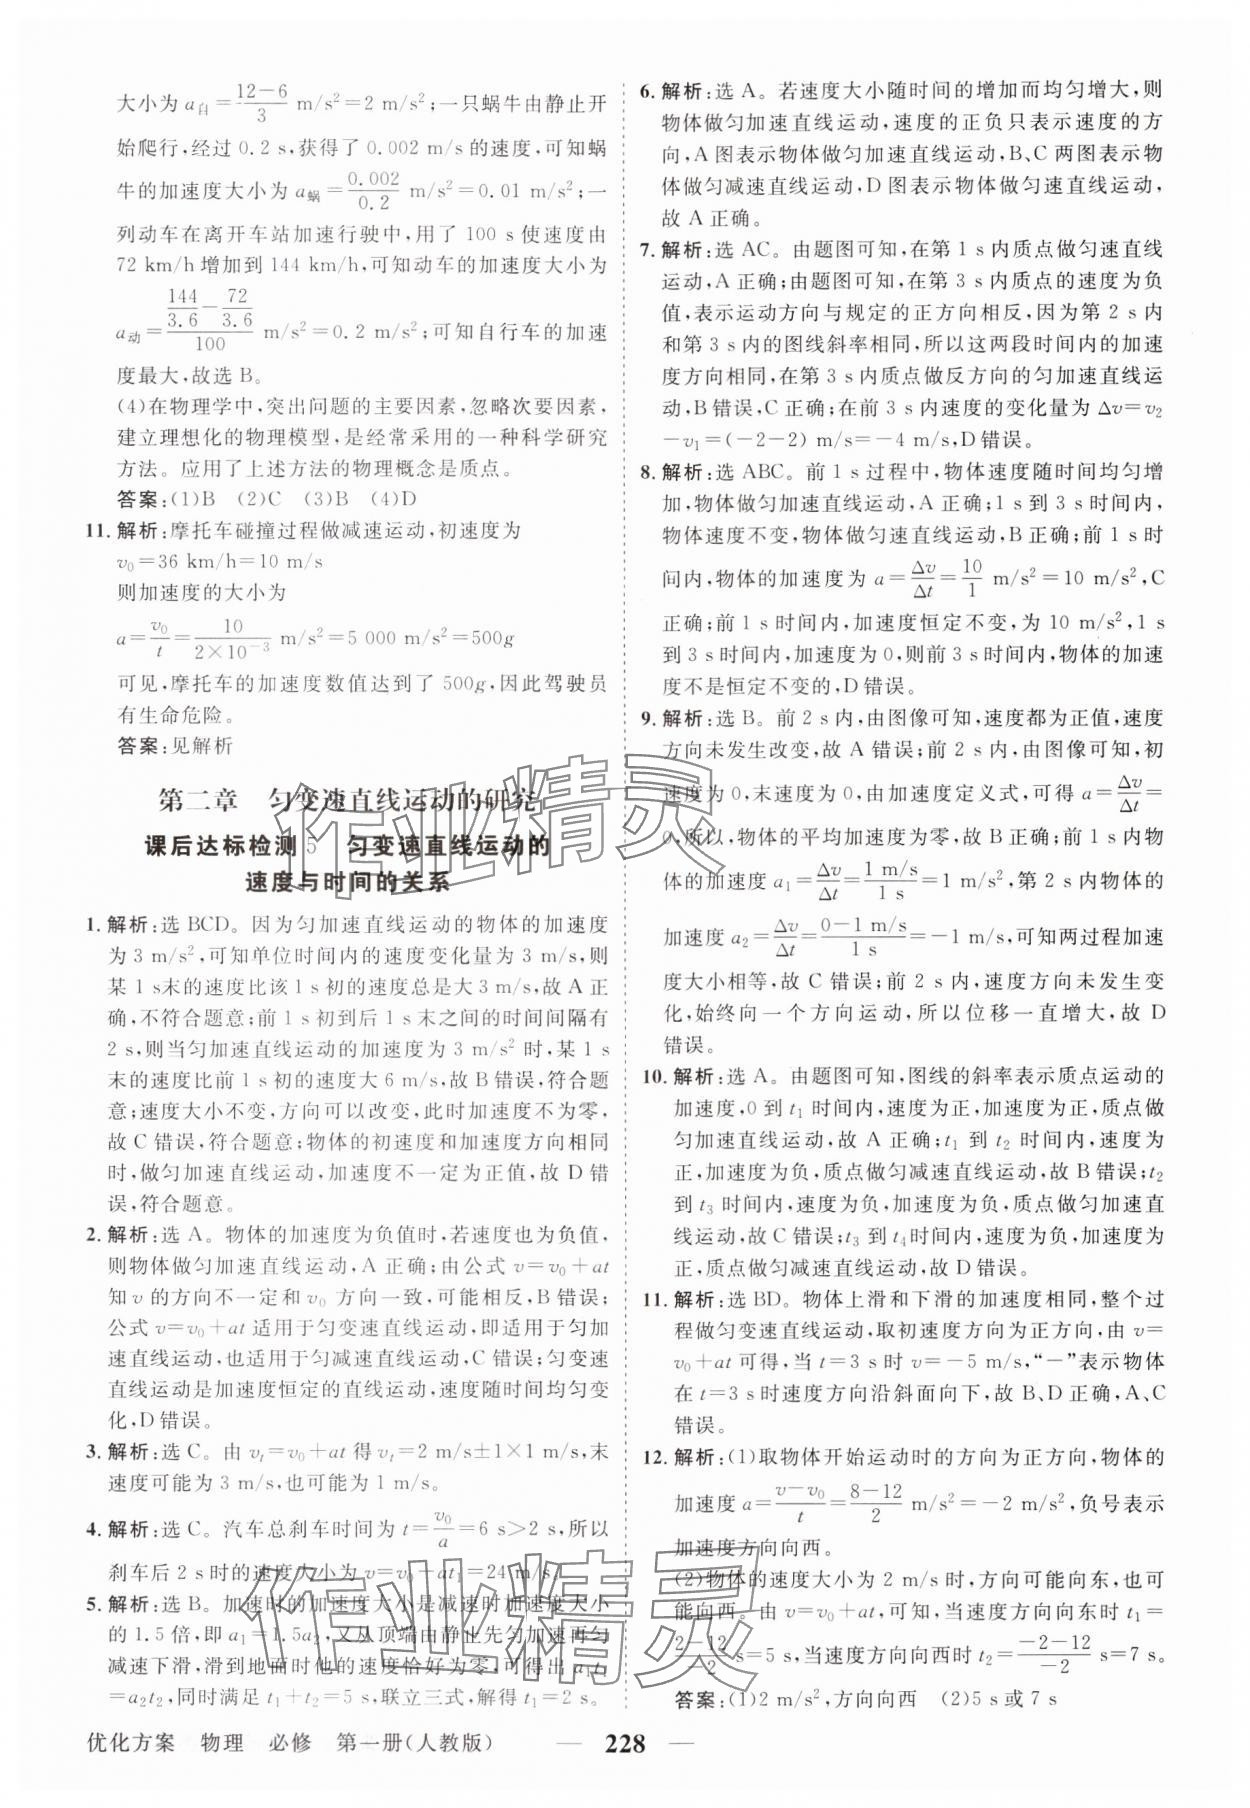 大小为 a自=(12-6)/3 m/s²=2 m/s²;一只蜗牛由静止开
始爬行,经过 0.2 s,获得了 0.002 m/s 的速度,可知蜗
牛的加速度大小为 a蜗=0.002/0.2 m/s²=0.01 m/s²;一
列动车在离开车站加速行驶中,用了 100 s 使速度由
72 km/h 增加到 144 km/h,可知动车的加速度大小为
a动=(144/3.6-72/3.6)/100 m/s²=0.2 m/s²;可知自行车的加速
度最大,故选 B。
(4)在物理学中,突出问题的主要因素,忽略次要因素,
建立理想化的物理模型,是经常采用的一种科学研究
方法。应用了上述方法的物理概念是质点。
答案:(1)B (2)C (3)B (4)D
11. 解析:摩托车碰撞过程做减速运动,初速度为
v₀=36 km/h=10 m/s
则加速度的大小为
a=v₀/t=10/(2×10⁻³) m/s²=5 000 m/s²=500g
可见,摩托车的加速度数值达到了 500g,因此驾驶员
有生命危险。
答案:见解析
第二章 匀变速直线运动的研究
课后达标检测 5 匀变速直线运动的
速度与时间的关系
1. 解析:选 BCD。因为匀加速直线运动的物体的加速度
为 3 m/s²,可知单位时间内的速度变化量为 3 m/s,则
某 1 s末的速度比该 1 s 初的速度总是大 3 m/s,故 A 正
确,不符合题意;前 1 s 初到后 1 s 末之间的时间间隔有
2 s,则当匀加速直线运动的加速度为 3 m/s² 时,某 1 s
末的速度比前 1 s 初的速度大 6 m/s,故 B 错误,符合题
意;速度大小不变,方向可以改变,此时加速度不为零,
故 C 错误,符合题意;物体的初速度和加速度方向相同
时,做匀加速直线运动,加速度不一定为正值,故 D 错
误,符合题意。
2. 解析:选 A。物体的加速度为负值时,若速度也为负值,
则物体做匀加速直线运动,A 正确;由公式 v=v₀+at
知 v 的方向不一定和 v₀ 方向一致,可能相反,B 错误;
公式 v=v₀+at 适用于匀变速直线运动,即适用于匀加
速直线运动,也适用于匀减速直线运动,C 错误;匀变速
直线运动是加速度恒定的直线运动,速度随时间均匀变
化,D 错误。
3. 解析:选 C。由 vₜ=v₀+at 得 vₜ=2 m/s±1×1 m/s,末
速度可能为 3 m/s,也可能为 1 m/s。
4. 解析:选 C。汽车总刹车时间为 t=v₀/a=6 s>2 s,所以
刹车后 2 s 时的速度大小为 v=v₀+at₁=24 m/s。
5. 解析:选 B。加速时的加速度大小是减速时加速度大小
的 1.5 倍,即 a₁=1.5a₂,又从顶端由静止先匀加速再匀
减速下滑,滑到地面时他的速度恰好为零,可得出 a₁t₁
=a₂t₂,同时满足 t₁+t₂=5 s,联立三式,解得 t₁=2 s。
6. 解析:选 A。若速度大小随时间的增加而均匀增大,则
物体做匀加速直线运动,速度的正负只表示速度的方
向,A 图表示物体做匀加速直线运动,B、C 两图表示物
体做匀减速直线运动,D 图表示物体做匀速直线运动,
故 A 正确。
7. 解析:选 AC。由题图可知,在第 1 s 内质点做匀速直线
运动,A 正确;由题图可知,在第 3 s 内质点的速度为负
值,表示运动方向与规定的正方向相反,因为第 2 s 内
和第 3 s 内的图线斜率相同,所以这两段时间内的加速
度方向相同,在第 3 s 内质点做反方向的匀加速直线运
动,B 错误,C 正确;在前 3 s 内速度的变化量为 Δv=v₂
-v₁=(-2-2) m/s=-4 m/s,D 错误。
8. 解析:选 ABC。前 1 s 过程中,物体速度随时间均匀增
加,物体做匀加速直线运动,A 正确;1 s 到 3 s 时间内,
物体速度不变,物体做匀速直线运动,B 正确;前 1 s 时
间内,物体的加速度为 a=Δv/Δt=10/1 m/s²=10 m/s²,C
正确;前 1 s 时间内,加速度恒定不变,为 10 m/s²,1 s
到 3 s 时间内,加速度为 0,则前 3 s 时间内,物体的加速
度不是恒定不变的,D 错误。
9. 解析:选 B。前 2 s 内,由图像可知,速度都为正值,速度
方向未发生改变,故 A 错误;前 2 s 内,由图像可知,初
速度为 0,末速度为 0,由加速度定义式,可得 a=Δv/Δt=
0,所以,物体的平均加速度为零,故 B 正确;前 1 s 内物
体的加速度 a₁=Δv/Δt=(1 m/s)/(1 s)=1 m/s²,第 2 s 内物体的
加速度 a₂=Δv/Δt=(0-1 m/s)/(1 s)=-1 m/s²,可知两过程加速
度大小相等,故 C 错误;前 2 s 内,速度方向未发生变
化,始终向一个方向运动,所以位移一直增大,故 D
错误。
10. 解析:选 A。由题图可知,图线的斜率表示质点运动的
加速度,0 到 t₁ 时间内,速度为正,加速度为正,质点做
匀加速直线运动,故 A 正确;t₁ 到 t₂ 时间内,速度为
正,加速度为负,质点做匀减速直线运动,故 B 错误;t₂
到 t₃ 时间内,速度为负,加速度为负,质点做匀加速直
线运动,故 C 错误;t₃ 到 t₄时间内,速度为负,加速度为
正,质点做匀减速直线运动,故 D 错误。
11. 解析:选 BD。物体上滑和下滑的加速度相同,整个过
程做匀变速直线运动,取初速度方向为正方向,由 v=
v₀+at 可得,当 t=3 s 时 v=-5 m/s,“-”表示物体
在 t=3 s时速度方向沿斜面向下,故 B、D 正确,A、C
错误。
12. 解析:(1)取物体开始运动时的方向为正方向,物体的
加速度 a=(v-v₀)/t=(8-12)/2 m/s²=-2 m/s²,负号表示
加速度方向向西。
(2)物体的速度大小为 2 m/s 时,方向可能向东,也可
能向西。由 v=v₀+at,可知,当速度方向向东时 t₁=
(2-12)/(-2) s=5 s,当速度方向向西时 t₂=(-2-12)/(-2) s=7 s。
答案:(1)2 m/s²,方向向西 (2)5 s 或 7 s
优化方案 物理 必修 第一册(人教版) — 228 —
作业精灵
作业精灵